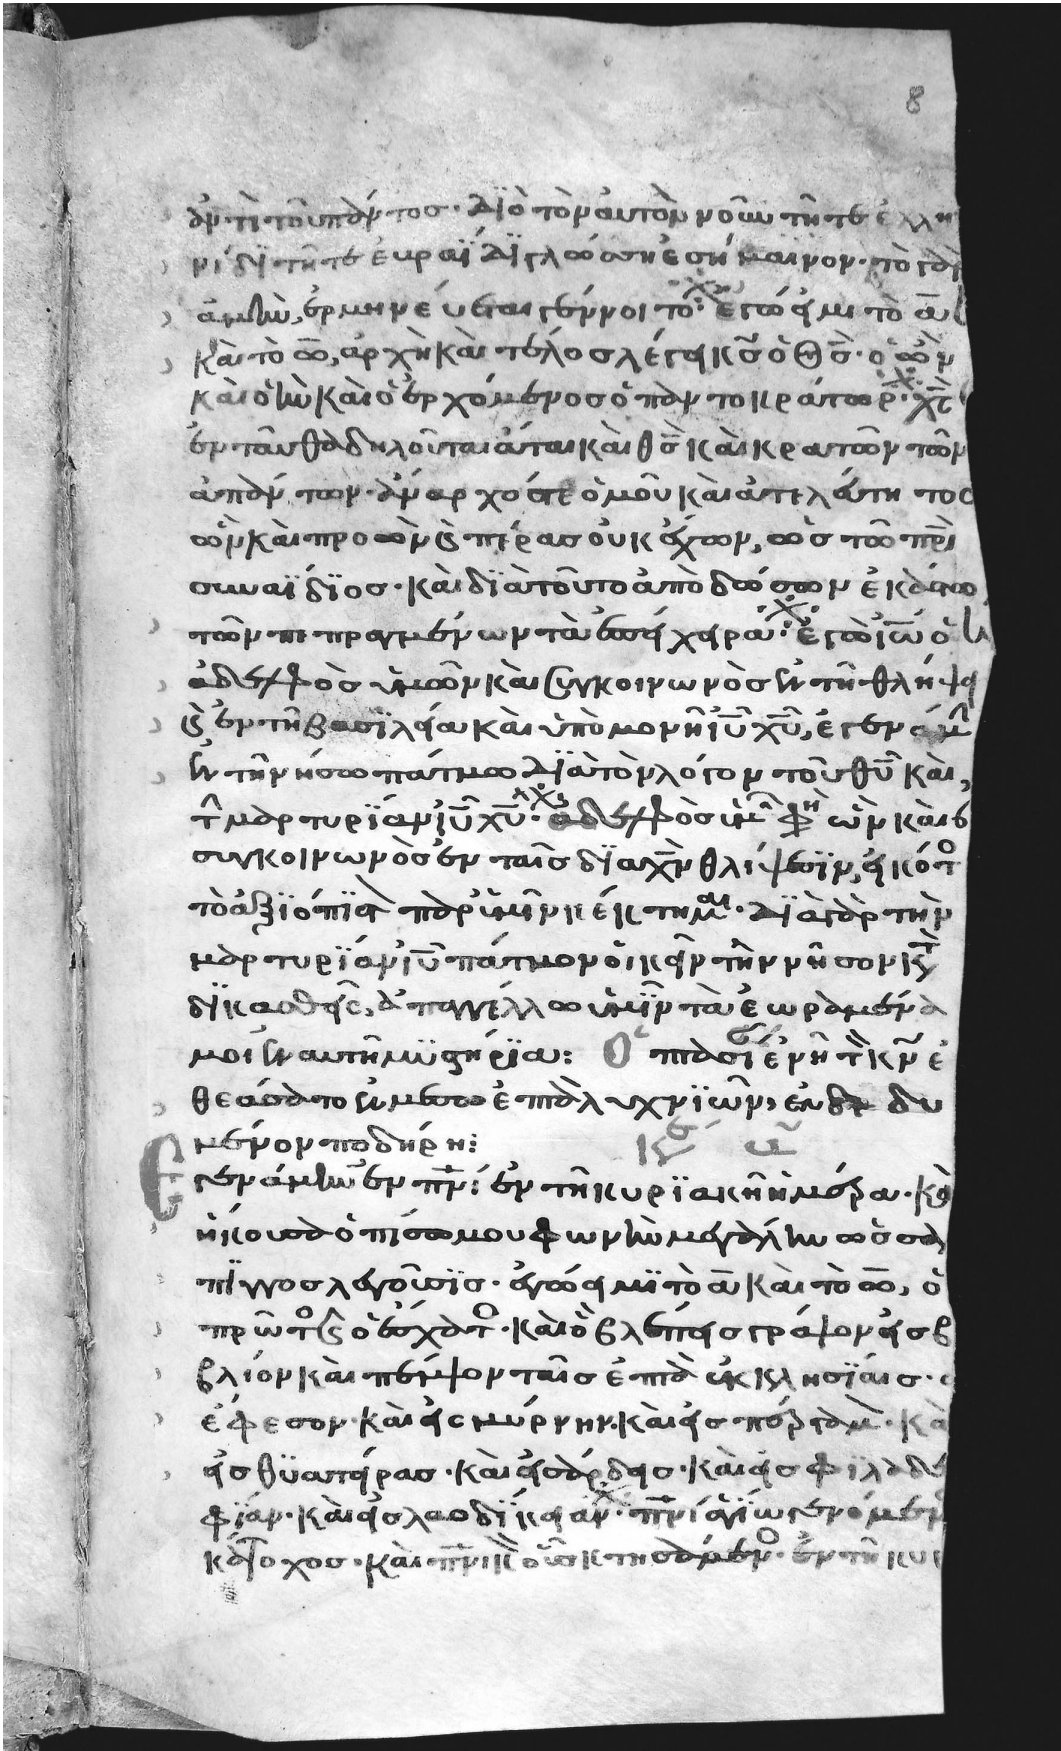 8
ἄν τι τοῦ παντος· Διὸ τὸν αὐτὸν νοῦν τῆ τε ἑλλη
νίδι τῆ τε ἑβραΐδι γλώσση ἐσήμαινον· τὸ γὰρ
ἀμὴν, ἑρμηνεύεται γένοιτο· ἐγώ εἰμι τὸ α
καὶ τὸ ω, ἀρχὴ καὶ τέλος λέγει κς ὁ θς· ὁ ὢν
καὶ ὁ ἦν καὶ ὁ ἐρχόμενος ὁ παντοκράτωρ· χς
ἐνταῦθα δηλοῦται εἶναι καὶ θς καὶ κρατῶν τῶν
ἁπάντων· ἄναρχός τε ὁμοῦ καὶ ἀτελεύτητος
ὢν καὶ προὼν καὶ πέρας οὐκ ἔχων, ὡς τῶ πρὶ
συναΐδιος· καὶ διὰ τοῦτο ἀποδώσων ἑκάστω
τῶν πεπραγμένων τὰ ἐπίχειρα· ἐγὼ ἰω ὁ
ἀδελφὸς ὑμῶν καὶ συγκοινωνὸς ἐν τῆ θλίψει
καὶ ἐν τῆ βασιλεία καὶ ὑπομονῆ ιυ χυ, ἐγενάμ
ἐν τῆ νήσω πάτμω διὰ τὸν λόγον τοῦ θυ καὶ
τ μαρτυρίαν ιυ χυ· ἀδελφὸς ὑμ φη ὢν καὶ
συγκοινωνὸς ἐν ταῖς διὰ χν θλίψεσιν, εἰκότ
τὸ ἀξιόπιστ παρ ὑμῖν κέκτημαι· Διὰ γὰρ τὴν
μαρτυρίαν ιυ πάτμον οἰκεῖν τὴν νῆσον κατ
δικασθεὶς, ἀπαγγέλλω ὑμῖν τὰ ἑωραμένα
μοι ἐν αὐτῆ μυστήρια: Οπτασί ἐν ἧ τ ιν ἐ
θεάσατο ἐν μέσω ἑπτὰ λυχνιῶν, ἐνδεδυ
μένον ποδήρη:
Ἐγενάμην ἐν πνι ἐν τῆ κυριακῆ ἡμέρα· καὶ
ἤκουσα ὀπίσω μου φωνὴν μεγάλην ὡς σάλ
πιγγος λεγούσης· ἐγώ εἰμι τὸ α καὶ τὸ ω, ὁ
πρῶτος καὶ ὁ ἔσχατος· καὶ ὃ βλέπεις γράψον εἰς β
βλίον καὶ πέμψον ταῖς ἑπτὰ ἐκκλησίαις·
ἔφεσον· καὶ εἰς μύρνην· καὶ εἰς πέργαμ· κα
εἰς θυάτειρας· καὶ εἰς σάρδεις· καὶ εἰς φιλαδέ
φίαν· καὶ εἰς λαοδίκειαν· πνι ἁγίω γενόμεν
κάτοχος· καὶ πνικ οὖς κτησάμεν· ἐν τῆ κυ